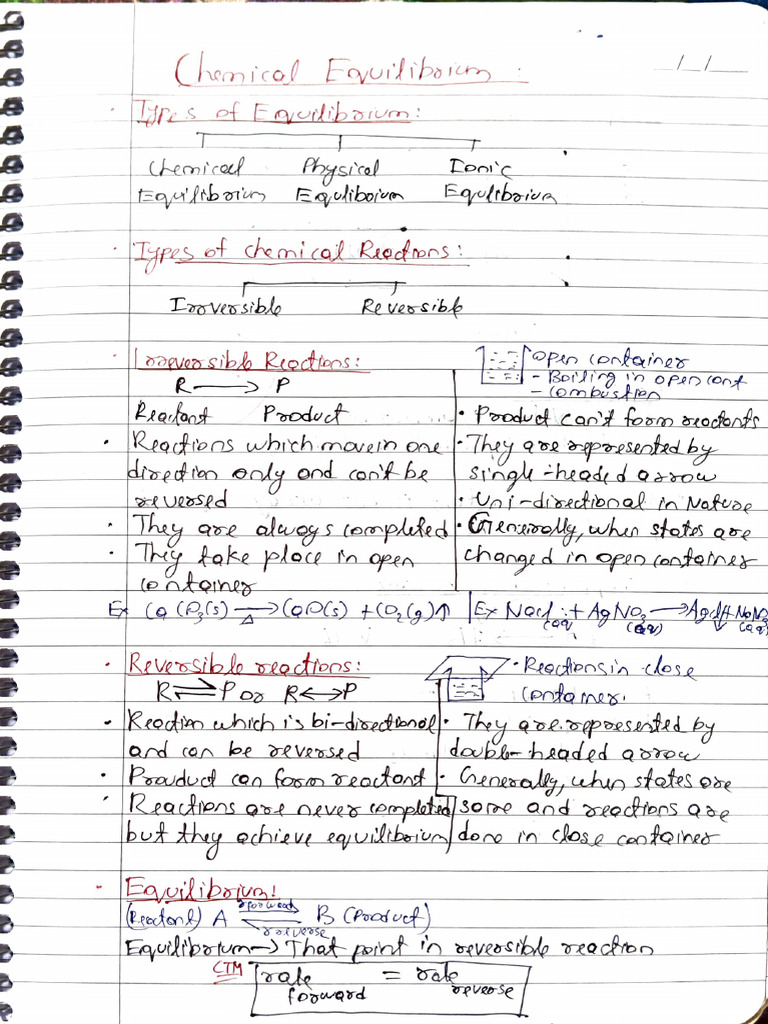 Chemical Equilibrium :
_/_/_
· Types of Equilibrium:
Chemical Physical Ionic
Equilibrium Equliboium Equlibrium
· Types of Chemical Reactions:
Irrversible Reversible
· Irreversible Reactions:
R → P
Reactant Product
· Reactions which move in one
direction only and can't be
reversed
· They are always completed
· They take place in open
container
open container
- Boiling in open cont
- combustion
· Product can't form reactants
· They are represented by
single-headed arrow
· Uni-directional in Nature
· Generally, when states are
changed in open container
Ex CaCO3(s) →Δ CaO(s) + CO2(g)↑
Ex NaCl(aq) + AgNO3(aq) → AgCl↓ + NaNO3(aq)
· Reversible reactions:
R ⇌ P or R ↔ P
· Reaction which is bi-directional
and can be reversed
· Prouduct can form reactant
· Reactions are never completed
but they achieve equilibrium
· Reactions in close
container.
· They are represented by
double-headed arrow
· Generally, when states are
same and reactions are
done in close container
- Equilibrium!
(Reactant) A ⇌ B (Product)
forward
reverse
Equilibrium → That point in reversible reaction
CTM rate forward = rate reverse